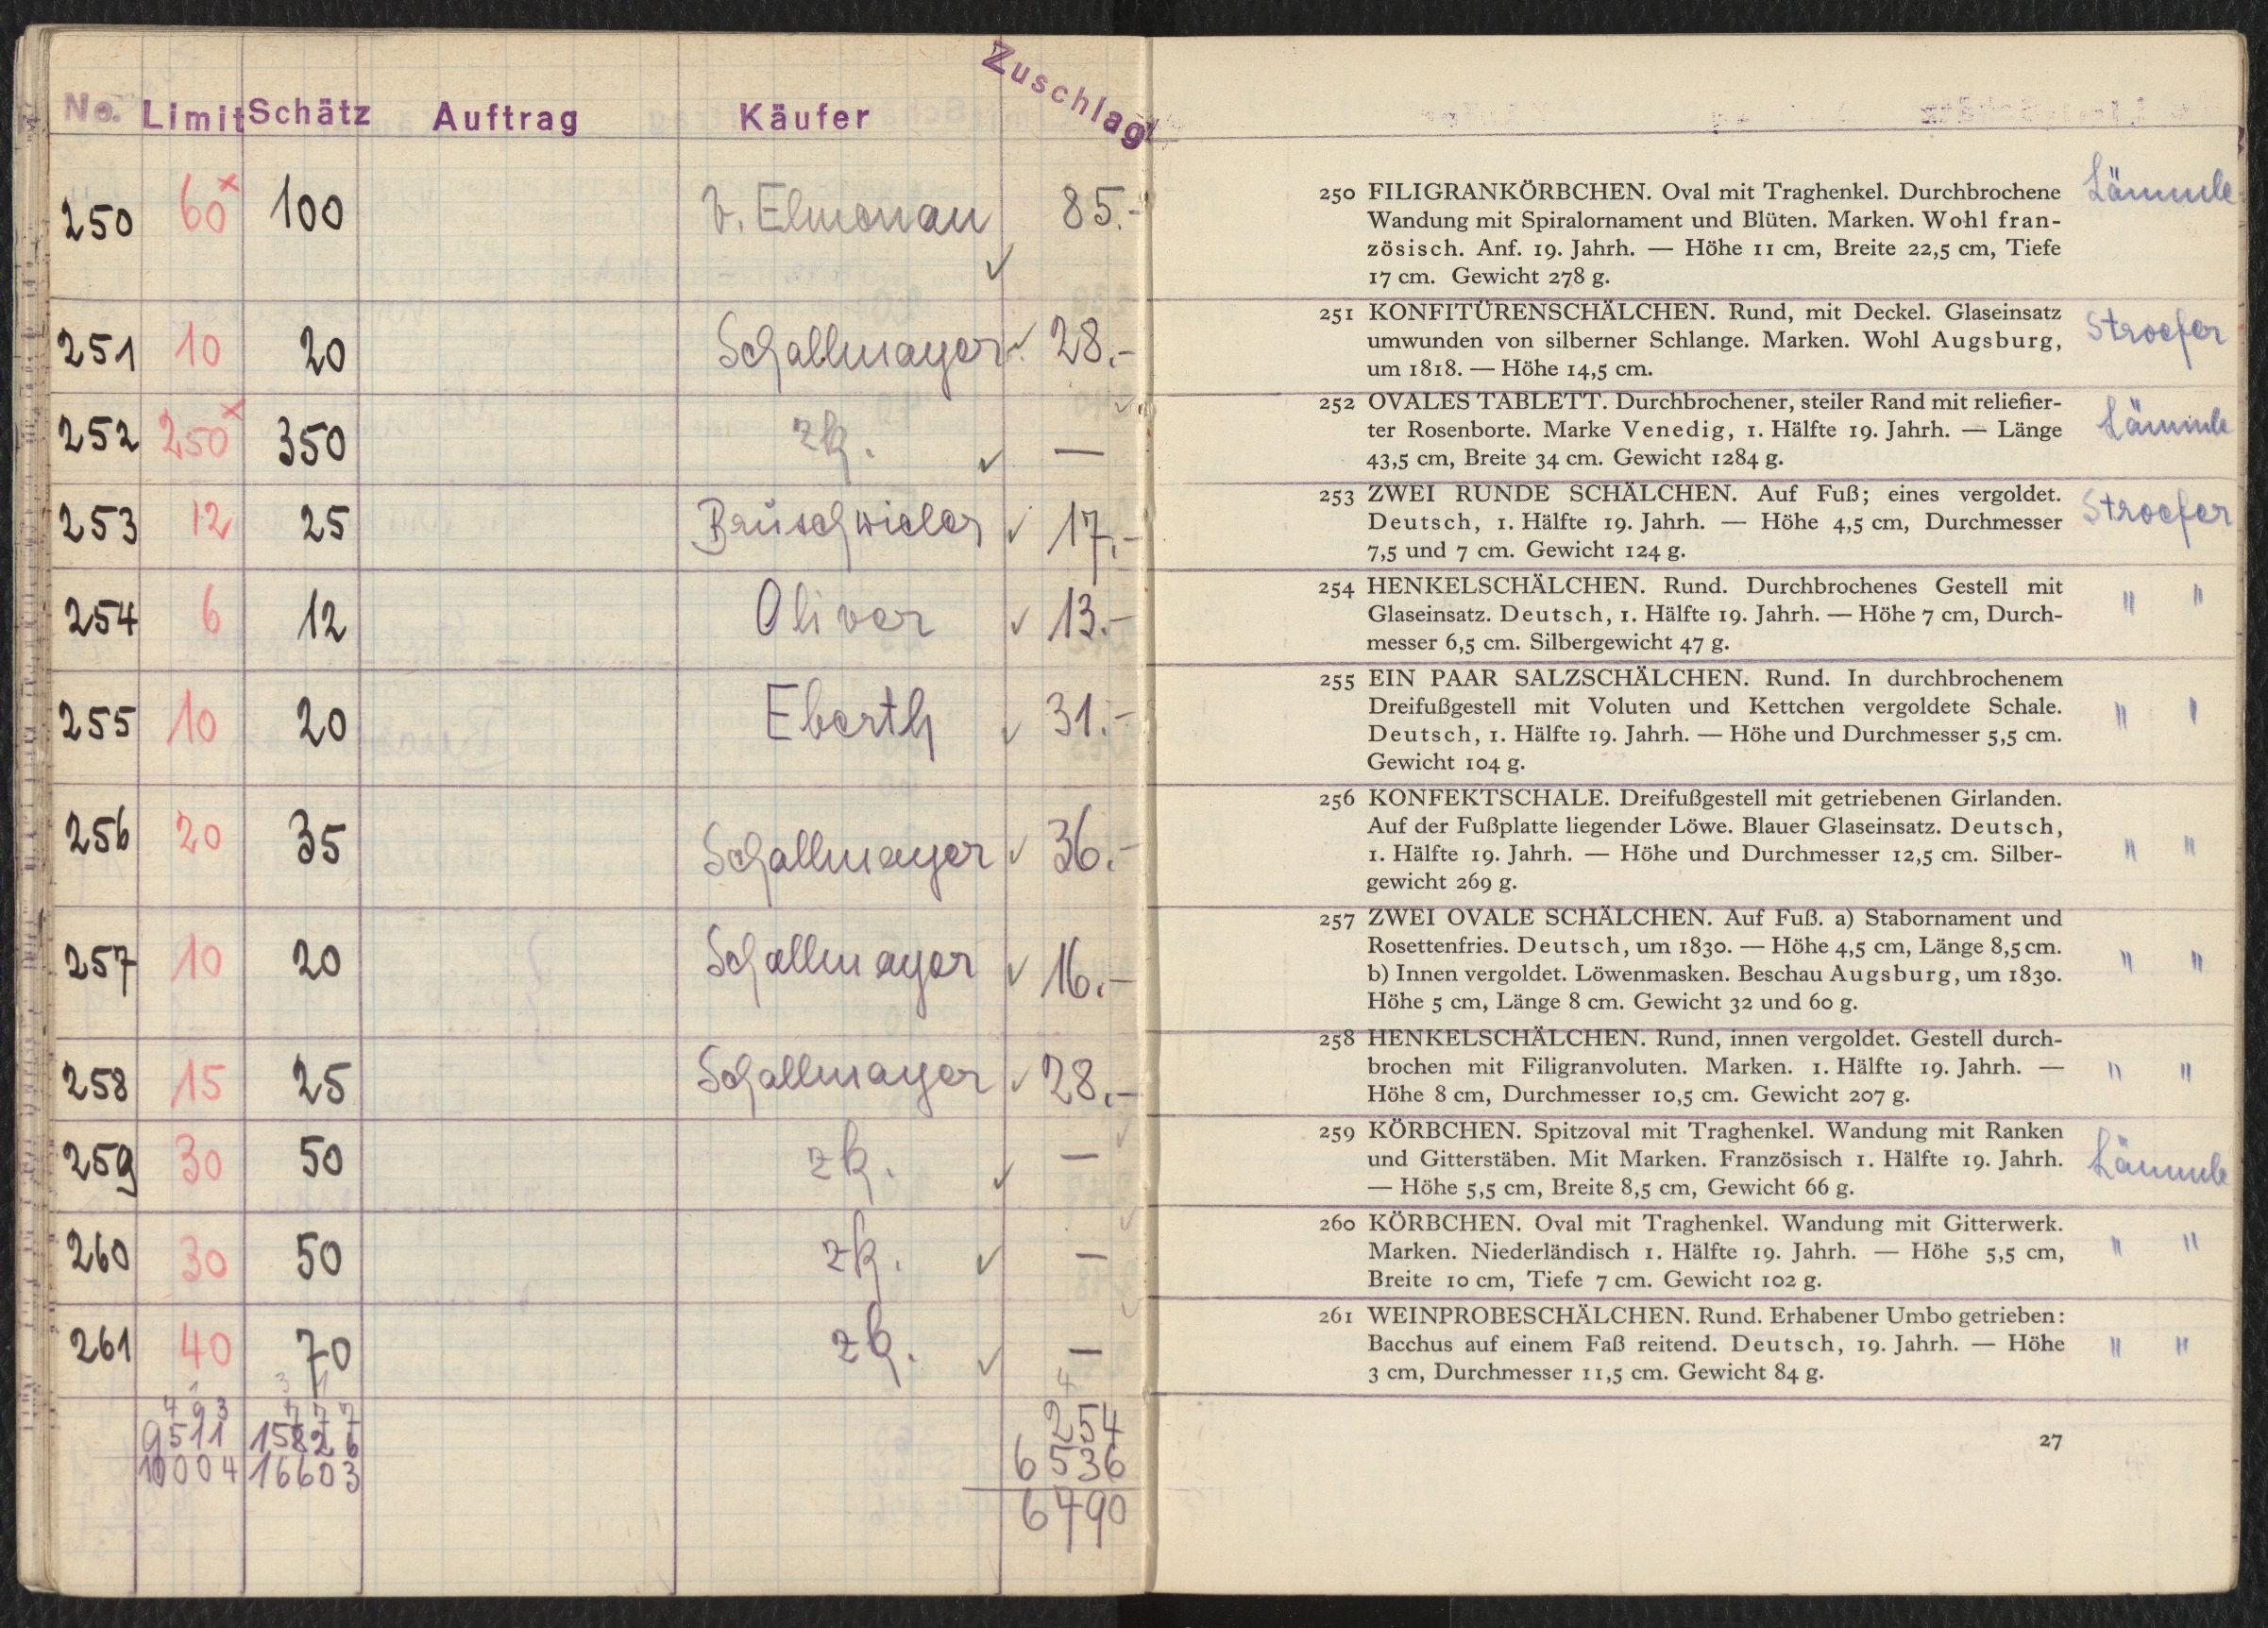 No. Limit Schätz Auftrag Käufer Zuschlag
250 60 x 100 v. Elmenau 85.-
251 10 20 Schallmayer 28.-
252 250 x 350 zk. —
253 12 25 17.-
254 6 12 Oliver 13.-
255 10 20 Eberth 31.-
256 20 35 Schallmayer 36.-
257 10 20 Schallmayer 16.-
258 15 25 Schallmayer 28.-
259 30 50 zk. —
260 30 50 zk. —
261 40 70 zk. —
493 777 254
9511 15826 6536
10004 16603
6790
250 FILIGRANKÖRBCHEN. Oval mit Traghenkel. Durchbrochene Lämmle
Wandung mit Spiralornament und Blüten. Marken. Wohl fran-
zösisch. Anf. 19. Jahrh. — Höhe 11 cm, Breite 22,5 cm, Tiefe
17 cm. Gewicht 278 g.
251 KONFITÜRENSCHÄLCHEN. Rund, mit Deckel. Glaseinsatz Stroefer
umwunden von silberner Schlange. Marken. Wohl Augsburg,
um 1818. — Höhe 14,5 cm.
252 OVALES TABLETT. Durchbrochener, steiler Rand mit reliefier- Lämmle
ter Rosenborte. Marke Venedig, 1. Hälfte 19. Jahrh. — Länge
43,5 cm, Breite 34 cm. Gewicht 1284 g.
253 ZWEI RUNDE SCHÄLCHEN. Auf Fuß; eines vergoldet. Stroefer
Deutsch, 1. Hälfte 19. Jahrh. — Höhe 4,5 cm, Durchmesser
7,5 und 7 cm. Gewicht 124 g.
254 HENKELSCHÄLCHEN. Rund. Durchbrochenes Gestell mit " "
Glaseinsatz. Deutsch, 1. Hälfte 19. Jahrh. — Höhe 7 cm, Durch-
messer 6,5 cm. Silbergewicht 47 g.
255 EIN PAAR SALZSCHÄLCHEN. Rund. In durchbrochenem " "
Dreifußgestell mit Voluten und Kettchen vergoldete Schale.
Deutsch, 1. Hälfte 19. Jahrh. — Höhe und Durchmesser 5,5 cm.
Gewicht 104 g.
256 KONFEKTSCHALE. Dreifußgestell mit getriebenen Girlanden. " "
Auf der Fußplatte liegender Löwe. Blauer Glaseinsatz. Deutsch,
1. Hälfte 19. Jahrh. — Höhe und Durchmesser 12,5 cm. Silber-
gewicht 269 g.
257 ZWEI OVALE SCHÄLCHEN. Auf Fuß. a) Stabornament und " "
Rosettenfries. Deutsch, um 1830. — Höhe 4,5 cm, Länge 8,5 cm.
b) Innen vergoldet. Löwenmasken. Beschau Augsburg, um 1830.
Höhe 5 cm, Länge 8 cm. Gewicht 32 und 60 g.
258 HENKELSCHÄLCHEN. Rund, innen vergoldet. Gestell durch- " "
brochen mit Filigranvoluten. Marken. 1. Hälfte 19. Jahrh. —
Höhe 8 cm, Durchmesser 10,5 cm. Gewicht 207 g.
259 KÖRBCHEN. Spitzoval mit Traghenkel. Wandung mit Ranken Lämmle
und Gitterstäben. Mit Marken. Französisch 1. Hälfte 19. Jahrh.
— Höhe 5,5 cm, Breite 8,5 cm, Gewicht 66 g.
260 KÖRBCHEN. Oval mit Traghenkel. Wandung mit Gitterwerk. " "
Marken. Niederländisch 1. Hälfte 19. Jahrh. — Höhe 5,5 cm,
Breite 10 cm, Tiefe 7 cm. Gewicht 102 g.
261 WEINPROBESCHÄLCHEN. Rund. Erhabener Umbo getrieben: " "
Bacchus auf einem Faß reitend. Deutsch, 19. Jahrh. — Höhe
3 cm, Durchmesser 11,5 cm. Gewicht 84 g.
27